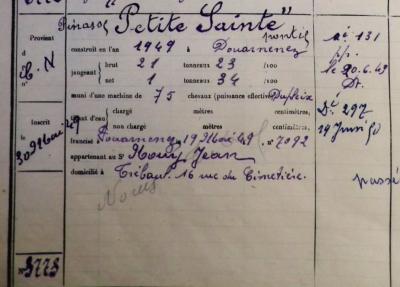 Pinasse "Petite Sainte"
ponté
n° 131
Provient
d
C. N
n°
construit en l'an 1949 à Douarnenez
pp.
brut 21 tonneaux 23 /100
jaugeant
net 1 tonneaux 34 /100
le 20.6.49
Dt.
muni d'une machine de 75 chevaux (puissance effective) Duplex
Dt 297
chargé mètres centimètres,
d'eau
non chargé mètres centimètres,
Inscrit
le
30 Mai 49
francisé à Douarnenez 19 Mai 49 n° 7092
appartenant au Sr Jean
domicilié à Tréboul. 16 rue du Cimetière.
passé
N° 3773